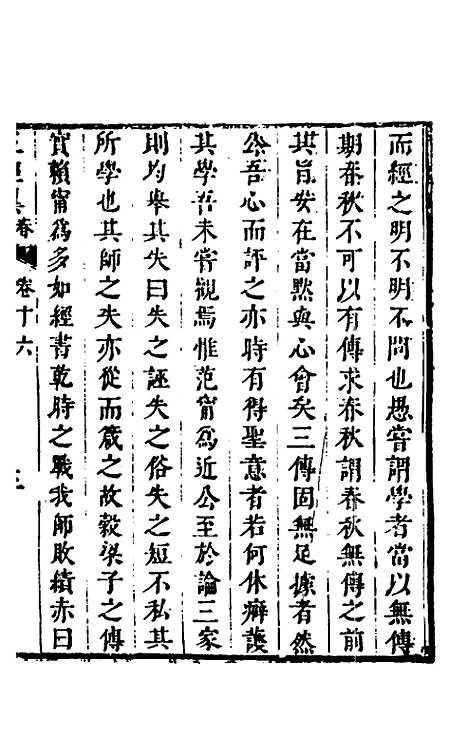 而經之明不明不問也愚嘗謂學者當以無傳
期春秋不可以有傳求春秋謂春秋無傳之前
其旨安在當默與心會矣三傳固無足據者然
公吾心而評之亦時有得聖意者若何休癖護
其學吾未嘗觀焉惟范甯爲近公至於論三家
則均舉其失曰失之誣失之俗失之短不私其
所學也其師之失亦從而箴之故穀梁子之傳
實賴甯爲多如經書乾時之戰我師敗績赤曰
經 卷十六 三